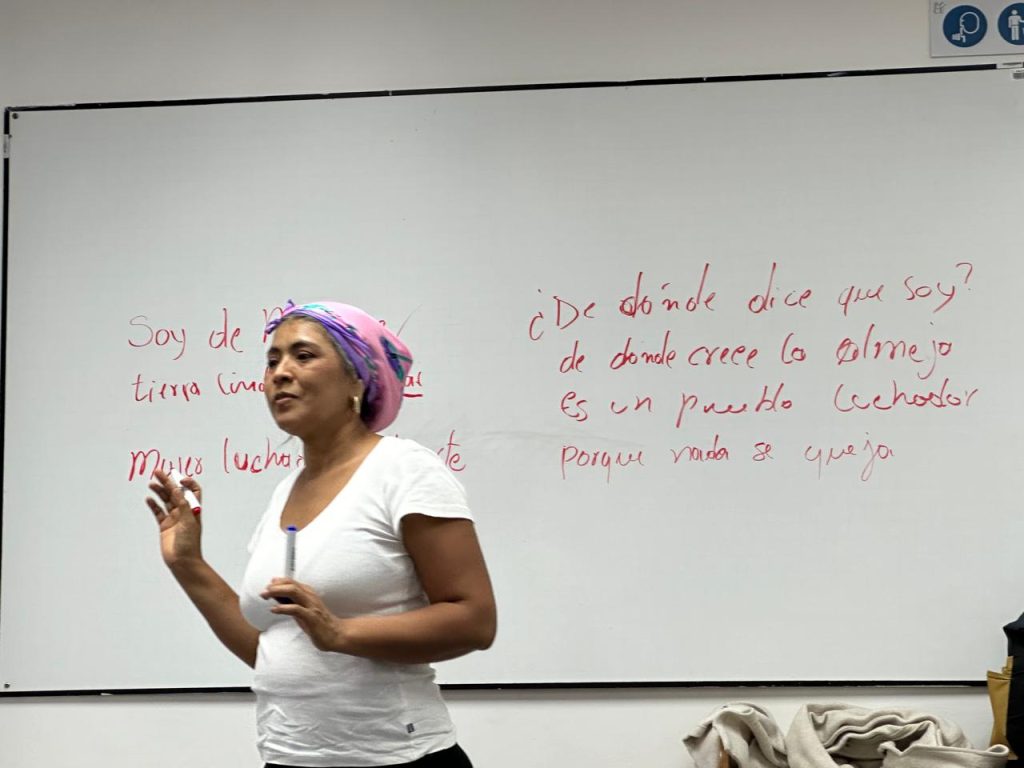 Soy de
tierra
Mujer
¿De dónde dice que soy?
de donde crece la almeja
Es un pueblo luchador
porque nada se queja